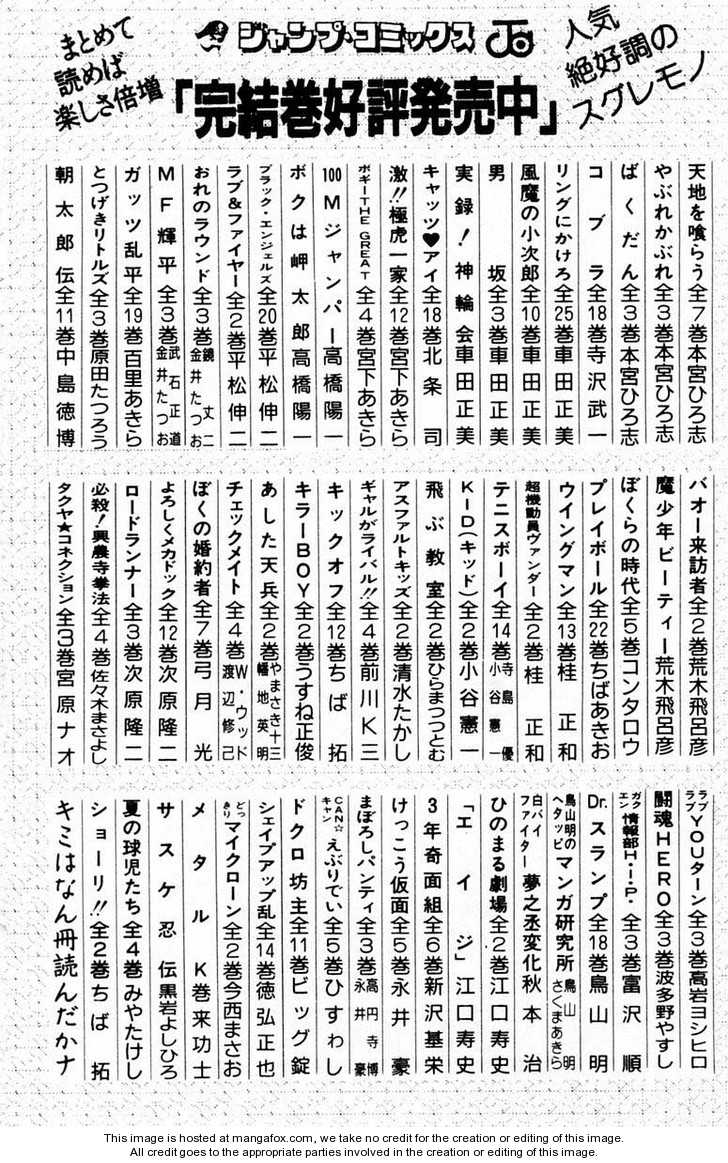 まとめて
読めば
楽しさ倍増
ジャンプ・コミックス
人気
絶好調の
スグレモノ
「完結巻好評発売中」
天地を喰らう全7巻本宮ひろ志
やぶれかぶれ全3巻本宮ひろ志
ばくだん全3巻本宮ひろ志
コブラ全18巻寺沢武一
リングにかけろ全25巻車田正美
風魔の小次郎全10巻車田正美
男坂全3巻車田正美
実録!神輪会車田正美
キャッツ♥アイ全18巻北条司
激!!極虎一家全12巻宮下あきら
ボギーTHE GREAT全4巻宮下あきら
100Mジャンパー高橋陽一
ボクは岬太郎高橋陽一
ブラック・エンジェルズ全20巻平松伸二
ラブ&ファイヤー全2巻平松伸二
おれのラウンド全3巻鏡丈二 金井たつお
MF輝平全3巻武石正道 金井たつお
ガッツ乱平全19巻百里あきら
とつげきリトルズ全3巻原田たつろう
朝太郎伝全11巻中島徳博
バオー来訪者全2巻荒木飛呂彦
魔少年ビーティー荒木飛呂彦
ぼくらの時代全5巻コンタロウ
プレイボール全22巻ちばあきお
ウイングマン全13巻桂正和
超機動員ヴァンダー全2巻桂正和
テニスボーイ全14巻寺島優 小谷憲一
KID(キッド)全2巻小谷憲一
飛ぶ教室全2巻ひらまつつとむ
アスファルトキッズ全2巻清水たかし
ギャルがライバル!!全4巻前川K三
キックオフ全12巻ちば拓
キラーBOY全2巻うすね正俊
あした天兵全2巻やまさき十三 幡地英明
チェックメイト全4巻W・ウッド 渡辺修己
ぼくの婚約者全7巻弓月光
よろしくメカドック全12巻次原隆二
ロードランナー全3巻次原隆二
必殺!興農寺拳法全4巻佐々木まさよし
タクヤ★コネクション全3巻宮原ナオ
ラブラブYOUターン全3巻高岩ヨシヒロ
闘魂HERO全3巻波多野やすし
ガクエン情報部H・I・P・全3巻富沢順
Dr.スランプ全18巻鳥山明
鳥山明のヘタッピマンガ研究所鳥山明 さくまあきら
白バイファイター夢之丞変化秋本治
ひのまる劇場全2巻江口寿史
「エイジ」江口寿史
3年奇面組全6巻新沢基栄
けっこう仮面全5巻永井豪
まぼろしパンティ全3巻高円寺博 永井豪
CAN☆キャンえぶりでい全5巻ひすわし
ドクロ坊主全11巻ビッグ錠
シェイプアップ乱全14巻徳弘正也
どっきりマイクローン全2巻今西まさお
メタルK巻来功士
サスケ忍伝黒岩よしひろ
夏の球児たち全4巻みやたけし
ショーリ!!全2巻ちば拓
キミはなん冊読んだかナ
This image is hosted at mangafox.com, we take no credit for the creation or editing of this image.
All credit goes to the appropriate parties involved in the creation or editing of this image.